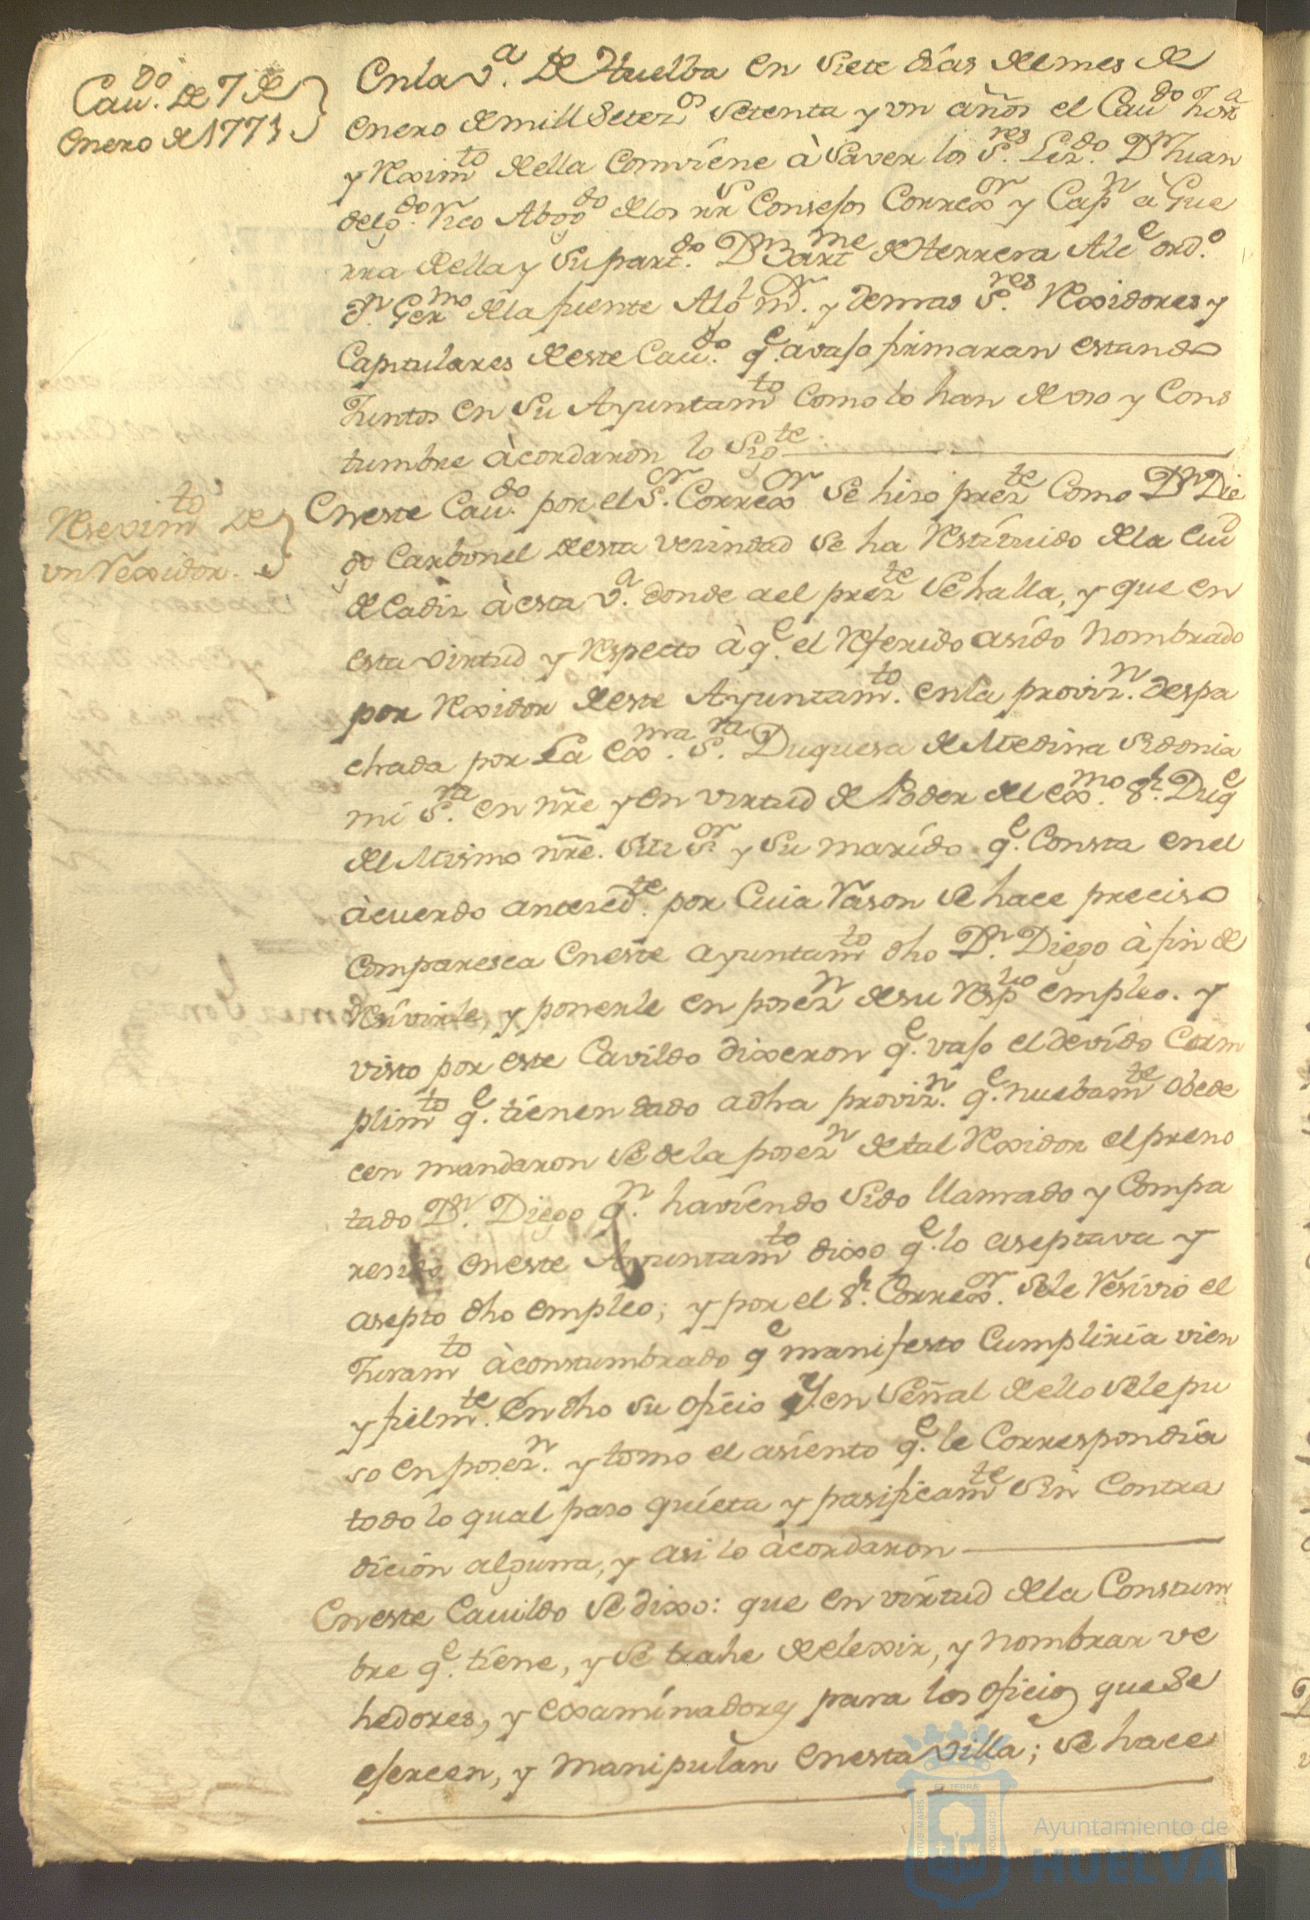 Cau.do de 7 de
Enero de 1771
En la v.a de Huelba en siete días del mes de
enero de mill setez.os setenta y un años el Cau.do Just.a
y Rexim.to della Conviene à Saver los S.res Lizdo. Dn Juan
delg.do Rico Abog.do de los rr.s Consejos Correx.or y Cap.n à Gue
rra della y su part.do Dn Bart.me de Herrera Alc.e ord.o
Dn Ger.mo de la fuente Alg.l m.r y demas S.res Rexidores y
Capitulares de este Cau.do q.e avajo firmaran estando
Juntos en su Ayuntam.to como lo han de uso y Cons
tumbre àcordaron lo Sig.te
Resevim.to de
un Rexidor.
En este Cau.do por el S.or Correx.or se hiso prez.te Como Dn Die
go Carbonel de esta vezindad se ha Restituido de la Ciud
de Cadiz à esta v.a donde a el prez.te se halla, y que en
esta virtud y Respecto à q.e el Referido asido nombrado
por Rexidor de este Ayuntam.to en la proviz.n despa
chada por La Ex.ma S.ra Duquesa de Medina Sidonia
mi S.ra en nre y en virtud de Poder del ex.mo S.r Duq.e
del Mismo nre. Mi S.or y su marído q.e Consta en el
àcuerdo anteced.te por Cuia Rason se hace preciso
Comparesca en este ayuntam.to dho Dn Diego à fin de
Resivirle, y ponerle en posez.n de su Resp.vo empleo. y
visto por este Cavildo dixeron q.e vajo el devído Cum
plim.to q.e tienen dado a dha proviz.n q.e nuebam.te obede
cen mandaron se de la posez.n de tal Rexidor el preno
tado Dn. Diego q.n haviendo sido llamado y Compa
resido en este Ayuntam.to dixo q.e lo aseptava y
asepto dho empleo; y por el S.r Correx.or se le Resivio el
Juram.to àconstumbrado q.e manifesto Cumpliria vien
y fielm.te en dho su oficio y en Señal de ello se le pu
so en posez.n y tomo el asiento q.e le Correspondía
todo lo qual paso quieta y pasificam.te sin Contra
dición alguna, y asi lo àcordaron
En este Cavildo se dixo: que en virtud de la Constum
bre q.e tiene, y se trahe de elexir, y nombrar ve
hedores, y examinadores para los oficios que se
ejercen, y manipulan en esta villa; se hace
Ayuntamiento de
HUELVA